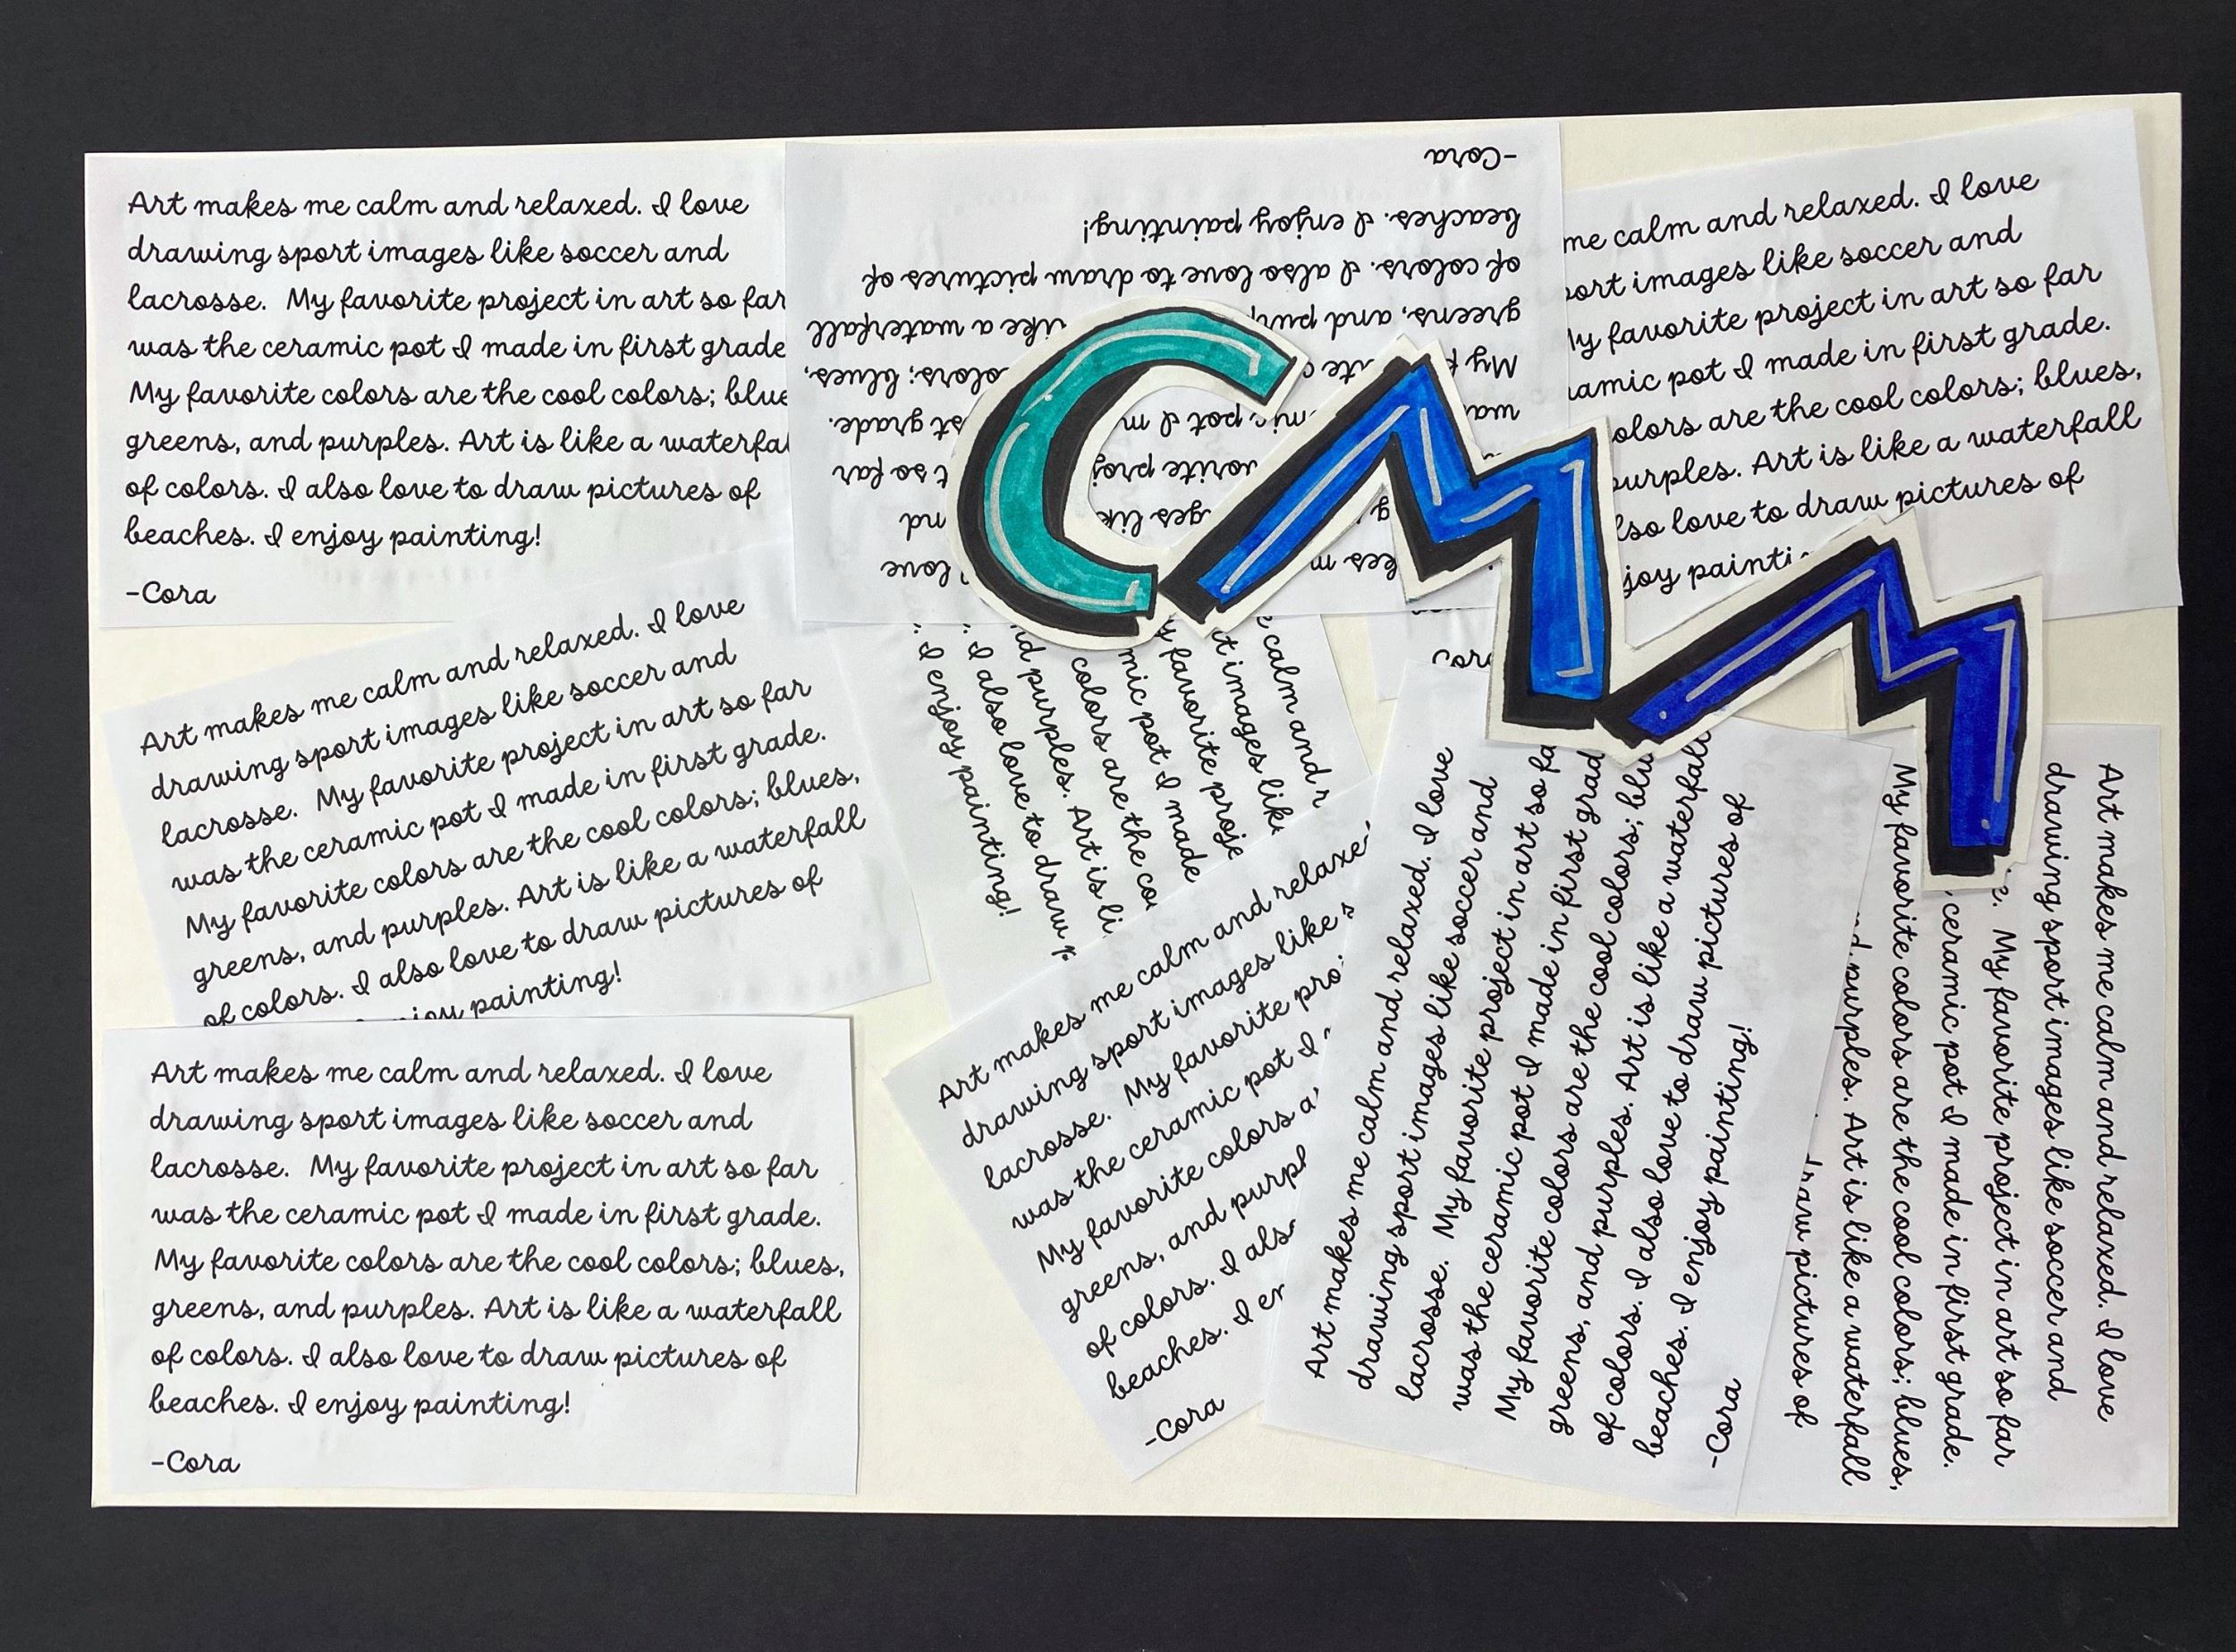 Art makes me calm and relaxed. I love
drawing sport images like soccer and
lacrosse. My favorite project in art so far
was the ceramic pot I made in first grade
My favorite colors are the cool colors; blue
greens, and purples. Art is like a waterfal
of colors. I also love to draw pictures of
beaches. I enjoy painting!
-Cora
love
so far
grade.
My colors; blues,
greens, and like a waterfall
of colors. I also love to draw pictures of
beaches. I enjoy painting!
-Cora
me calm and relaxed. I love
port images like soccer and
My favorite project in art so far
amic pot I made in first grade.
olors are the cool colors; blues,
purples. Art is like a waterfall
lso love to draw pictures of
joy painti
Cora
CMM
Art makes me calm and relaxed. I love
drawing sport images like soccer and
lacrosse. My favorite project in art so far
was the ceramic pot I made in first grade.
My favorite colors are the cool colors; blues,
greens, and purples. Art is like a waterfall
of colors. I also love to draw pictures of
enjoy painting!
calm and
images like
favorite proje
mic pot I made
colors are the co
purples. Art is li
I also love to draw
I enjoy painting!
Art makes me calm and relaxed. I love
drawing sport images like soccer and
lacrosse. My favorite project in art so far
was the ceramic pot I made in first grade.
My favorite colors are the cool colors; blues,
greens, and purples. Art is like a waterfall
of colors. I also love to draw pictures of
beaches. I enjoy painting!
-Cora
Art makes me calm and relaxe
drawing sport images like s
lacrosse. My favorite pro
was the ceramic pot I
My favorite colors a
greens, and purpl
of colors. I als
beaches. I en
-Cora
Art makes me calm and relaxed. I love
drawing sport images like soccer and
lacrosse. My favorite project in art so fa
was the ceramic pot I made in first grad
My favorite colors are the cool colors; blu
greens, and purples. Art is like a waterfall
of colors. I also love to draw pictures of
beaches. I enjoy painting!
-Cora
Art makes me calm and relaxed. I love
drawing sport images like soccer and
My favorite project in art so far
ceramic pot I made in first grade.
My favorite colors are the cool colors; blues,
purples. Art is like a waterfall
draw pictures of